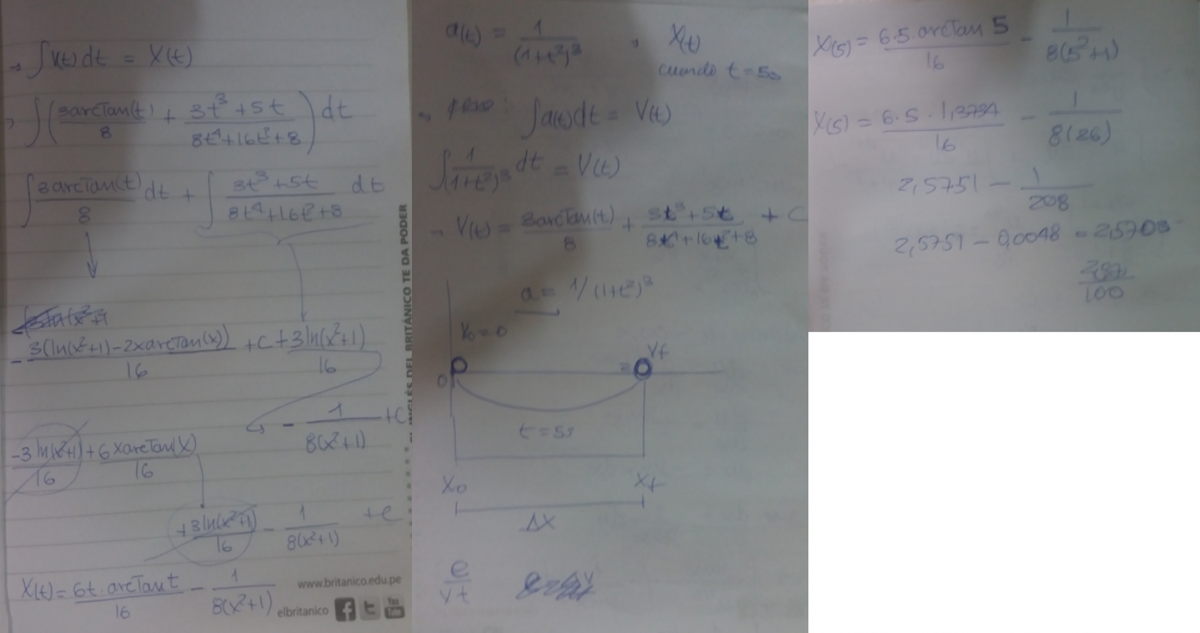 → ∫V(t) dt = X(t)
→ ∫(3arcTan(t)/8 + 3t³+5t/8t⁴+16t²+8) dt
∫3arcTan(t)/8 dt + ∫3t³+5t/8t⁴+16t²+8 dt
-3(ln(x²+1)-2xarcTan(x))/16 + C + 3ln(x²+1)/16
- 1/8(x²+1) + C
-3ln(x²+1)/16 + 6xarcTan(x)/16
+3ln(x²+1)/16 - 1/8(x²+1) + C
X(t) = 6t.arcTant/16 - 1/8(x²+1)
www.britanico.edu.pe
elbritanico
INGLÉS DEL BRITÁNICO TE DA PODER
a(t) = 1/(1+t²)³ , X(t)
cuando t=5s
∫a(t)dt = V(t)
∫1/(1+t²)³ dt = V(t)
→ V(t) = 3arcTan(t)/8 + 3t³+5t/8t⁴+16t²+8 + C
a = 1/(1+t²)³
V₀=0
Vf
0
t=5s
X₀
Xf
ΔX
e/vt
X(5) = 6.5.arcTan 5/16 - 1/8(5²+1)
X(5) = 6.5.1,3734/16 - 1/8(26)
2,5751 - 1/208
2,5751 - 0,0048 = 2,5703